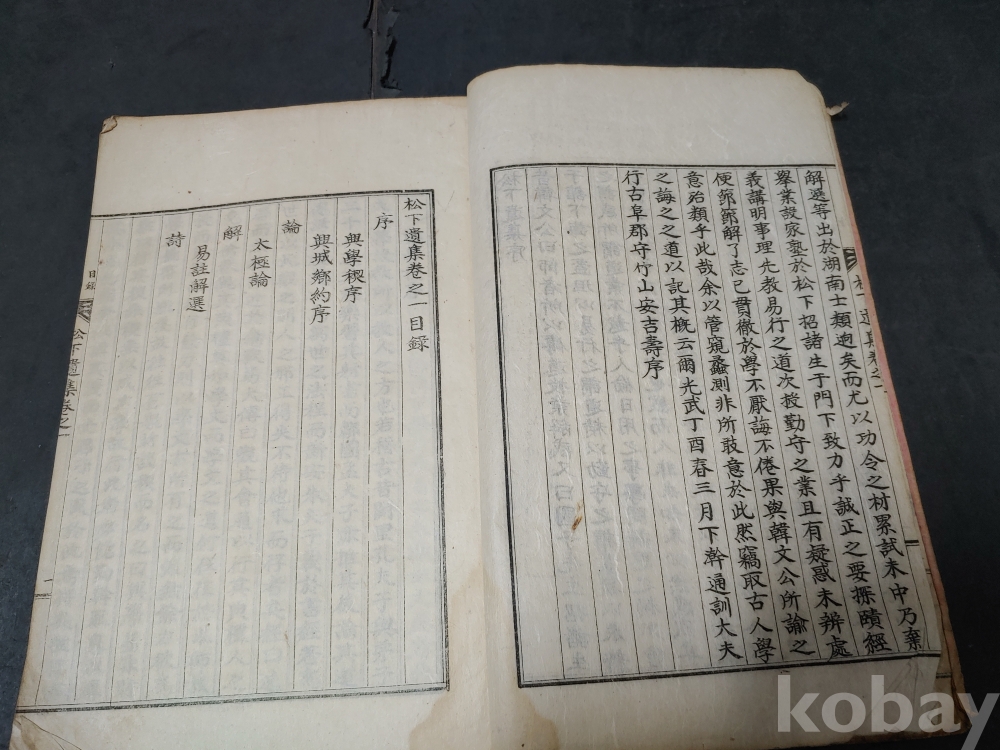 解選等出於湖南士類迥矣而尤以功令之材累試未中乃棄
擧業設家塾於松下招諸生于門下致力乎誠正之要探賾經
義講明事理先教易行之道次授勤守之業且有疑惑未辨處
便節節解了志已貫徹於學不厭誨不倦果與韓文公所論之
意殆類乎此哉余以管窺蠡測非所敢意於此然竊取古人學
之誨之之道以記其槪云爾光武丁酉春三月下幹通訓大夫
行古阜郡守竹山安吉壽序
松下遺集卷之一目錄
序
興學稧序
興城鄕約序
論
太極論
解
易註解選
詩
目錄
松下遺集卷之一
kobay